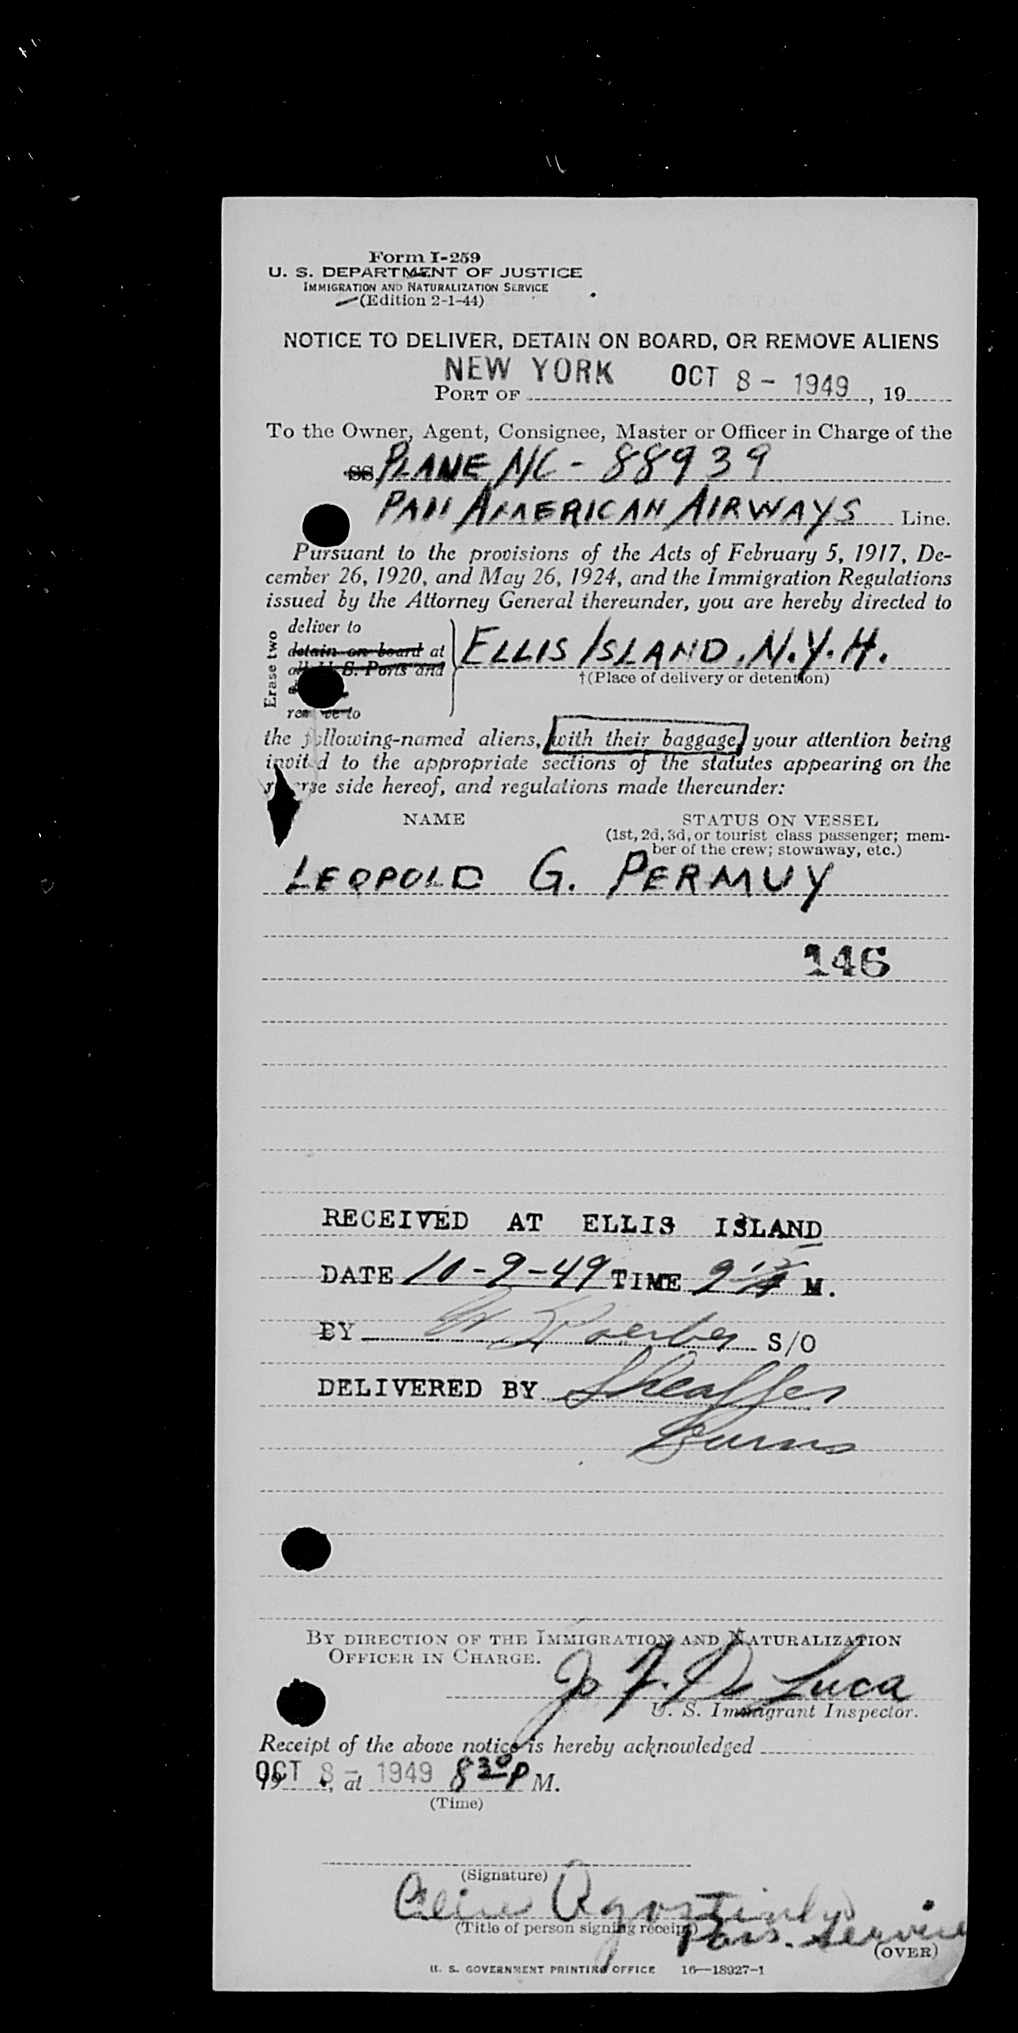 Form I-259
U. S. DEPARTMENT OF JUSTICE
IMMIGRATION AND NATURALIZATION SERVICE
(Edition 2-1-44)
NOTICE TO DELIVER, DETAIN ON BOARD, OR REMOVE ALIENS
NEW YORK OCT 8 - 1949
PORT OF , 19
To the Owner, Agent, Consignee, Master or Officer in Charge of the
SS PLANE NC - 88939
PAN AMERICAN AIRWAYS Line.
Pursuant to the provisions of the Acts of February 5, 1917, De-
cember 26, 1920, and May 26, 1924, and the Immigration Regulations
issued by the Attorney General thereunder, you are hereby directed to
Erase two
deliver to
detain on board at ELLIS ISLAND. N.Y.H.
all U. S. Ports and
†(Place of delivery or detention)
remove to
the following-named aliens, with their baggage, your attention being
invited to the appropriate sections of the statutes appearing on the
reverse side hereof, and regulations made thereunder:
NAME STATUS ON VESSEL
(1st, 2d, 3d, or tourist class passenger; mem-
ber of the crew; stowaway, etc.)
LEOPOLD G. PERMUY
146
RECEIVED AT ELLIS ISLAND
DATE 10-9-49 TIME 9 15 M.
BY S/O
DELIVERED BY Sheaffer
Burns
BY DIRECTION OF THE IMMIGRATION AND NATURALIZATION
OFFICER IN CHARGE.
Jo F. De Luca
U. S. Immigrant Inspector.
Receipt of the above notice is hereby acknowledged
OCT 8 - 1949 8 30 P M.
19 , at
(Time)
(Signature)
(Title of person signing receipt)
Pass. Service
(OVER)
U. S. GOVERNMENT PRINTING OFFICE 16—18927-1